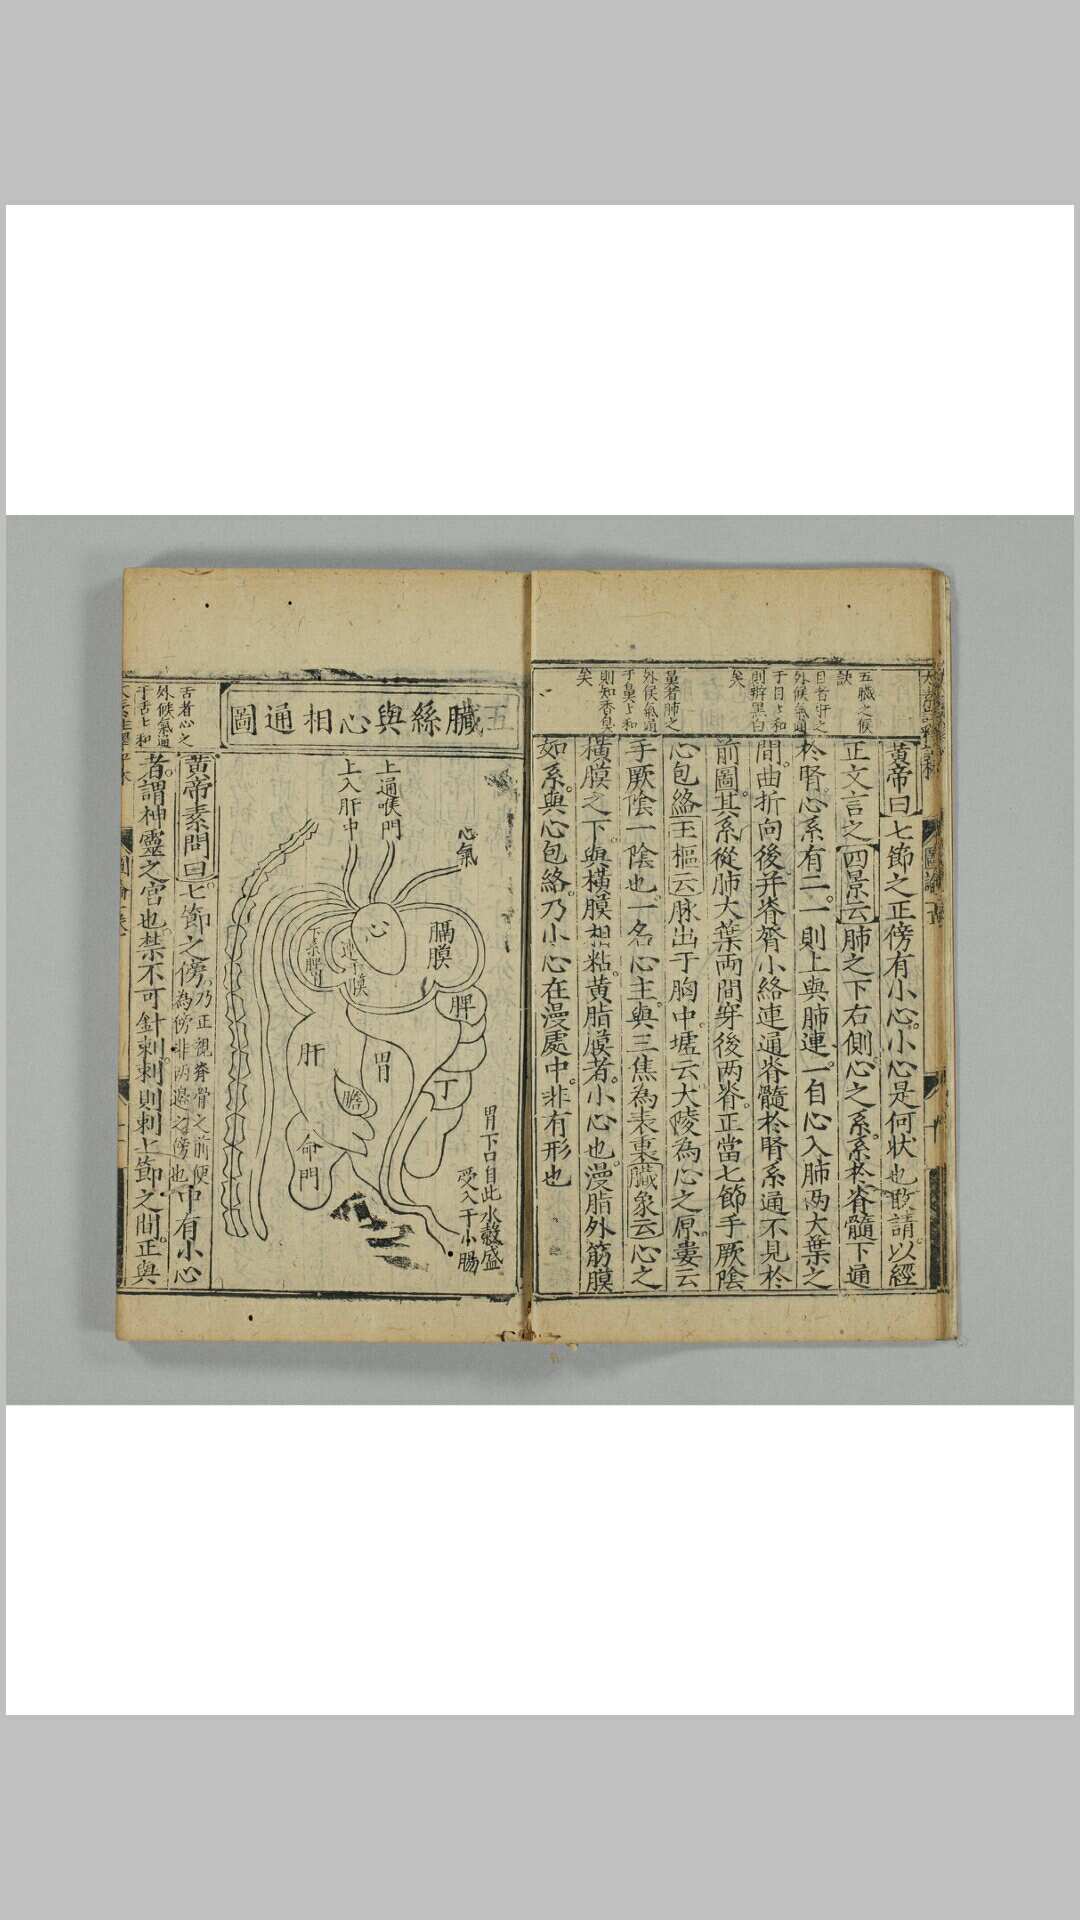 五臟之候
訣
目者肝之
外候氣通
于目目和
則辨黑白
矣
鼻者肺之
外候氣通
于鼻鼻和
則知香臭
矣
黃帝曰七節之正傍有小心小心是何狀也敢請以經
正文言之四景云肺之下右側心之系系於脊髓下通
於腎心系有二一則上與肺連一自心入肺兩大葉之
間曲折向後并脊膂小絡連通脊髓於腎系通不見於
前圖其系從肺大葉兩間穿後兩脊正當七節手厥陰
心包絡玉樞云脉出于胸中墟云大陵為心之原婁云
手厥陰一陰也一名心主與三焦為表裏臟象云心之
橫膜之下與橫膜相粘黃脂膜者小心也漫脂外筋膜
如系與心包絡乃小心在漫處中非有形也
五臟絲與心相通圖
心氣
上通喉門
上入肝中
心
膈膜
脾
肝
胃
膽
命門
胃下口自此水穀盛
受入于小腸
舌者心之
外候氣通
于舌舌和
黃帝素問曰七節之傍
乃正視脊骨之前便
為傍非兩邊之傍也
中有小心
者謂神靈之宮也禁不可針刺刺則刺上節之間正與